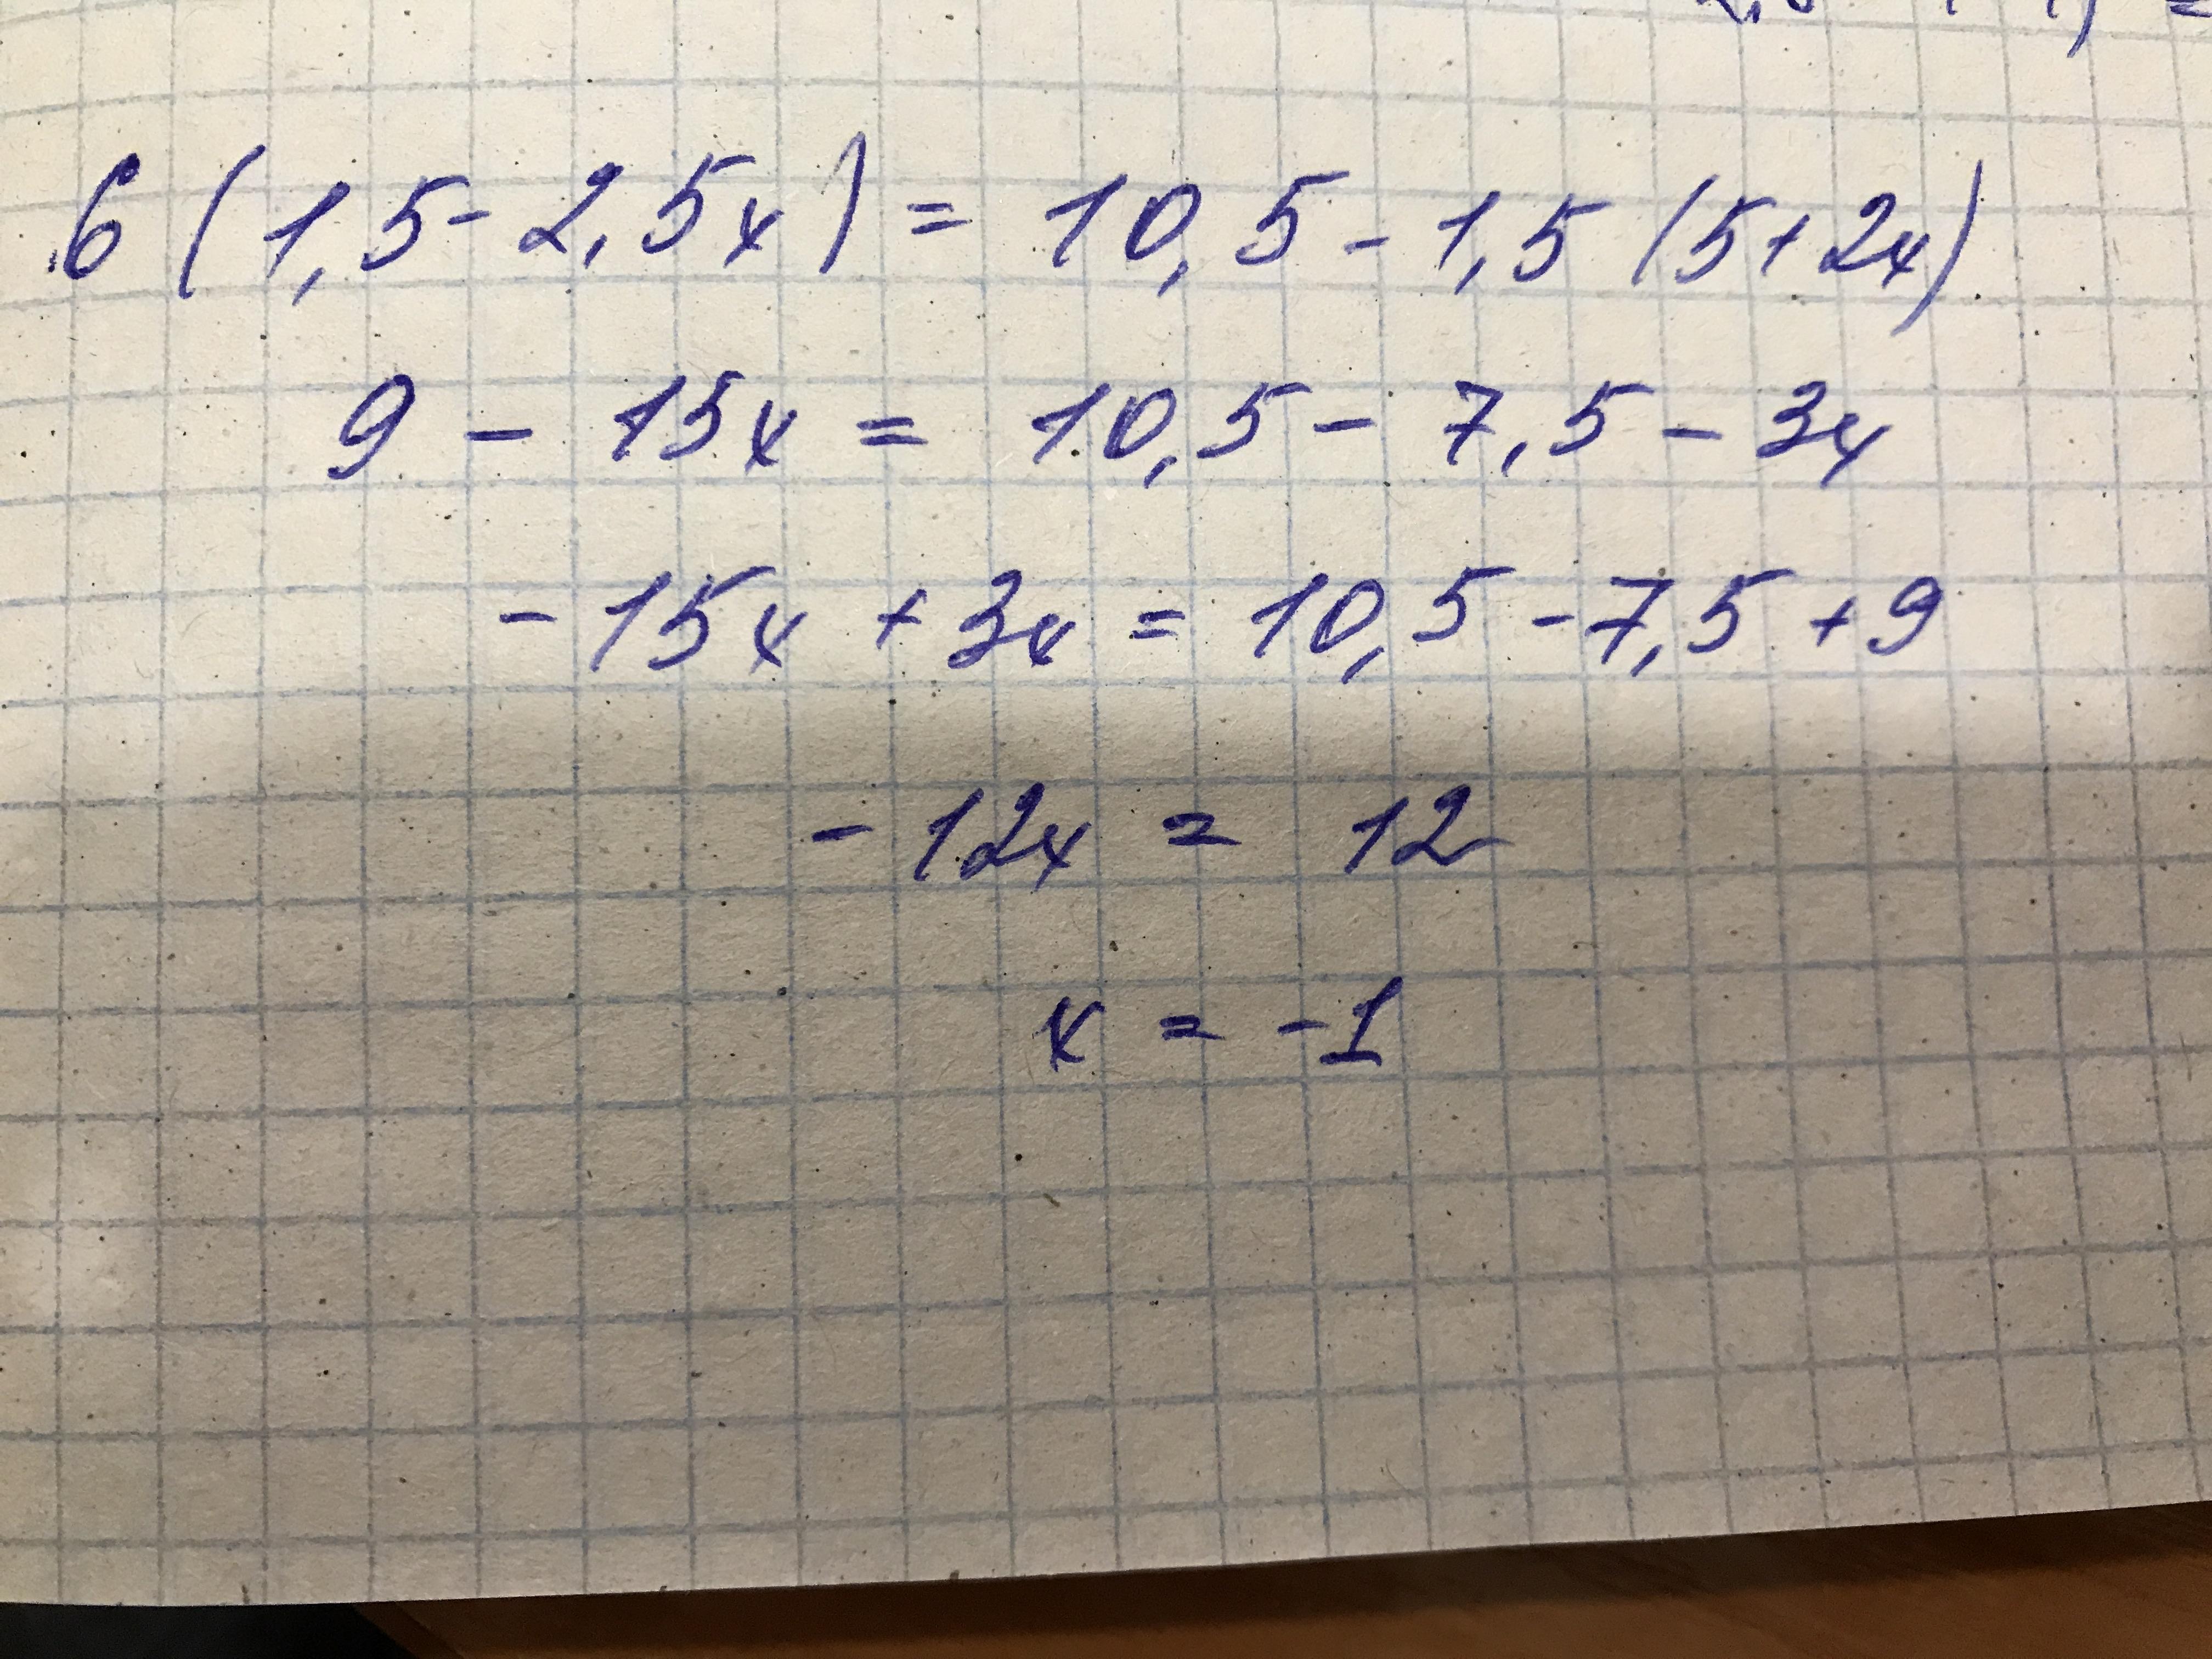 6 (1,5 - 2,5x) = 10,5 - 1,5 (5 + 2x)
9 - 15x = 10,5 - 7,5 - 3x
- 15x + 3x = 10,5 - 7,5 + 9
- 12x = 12
x = -1